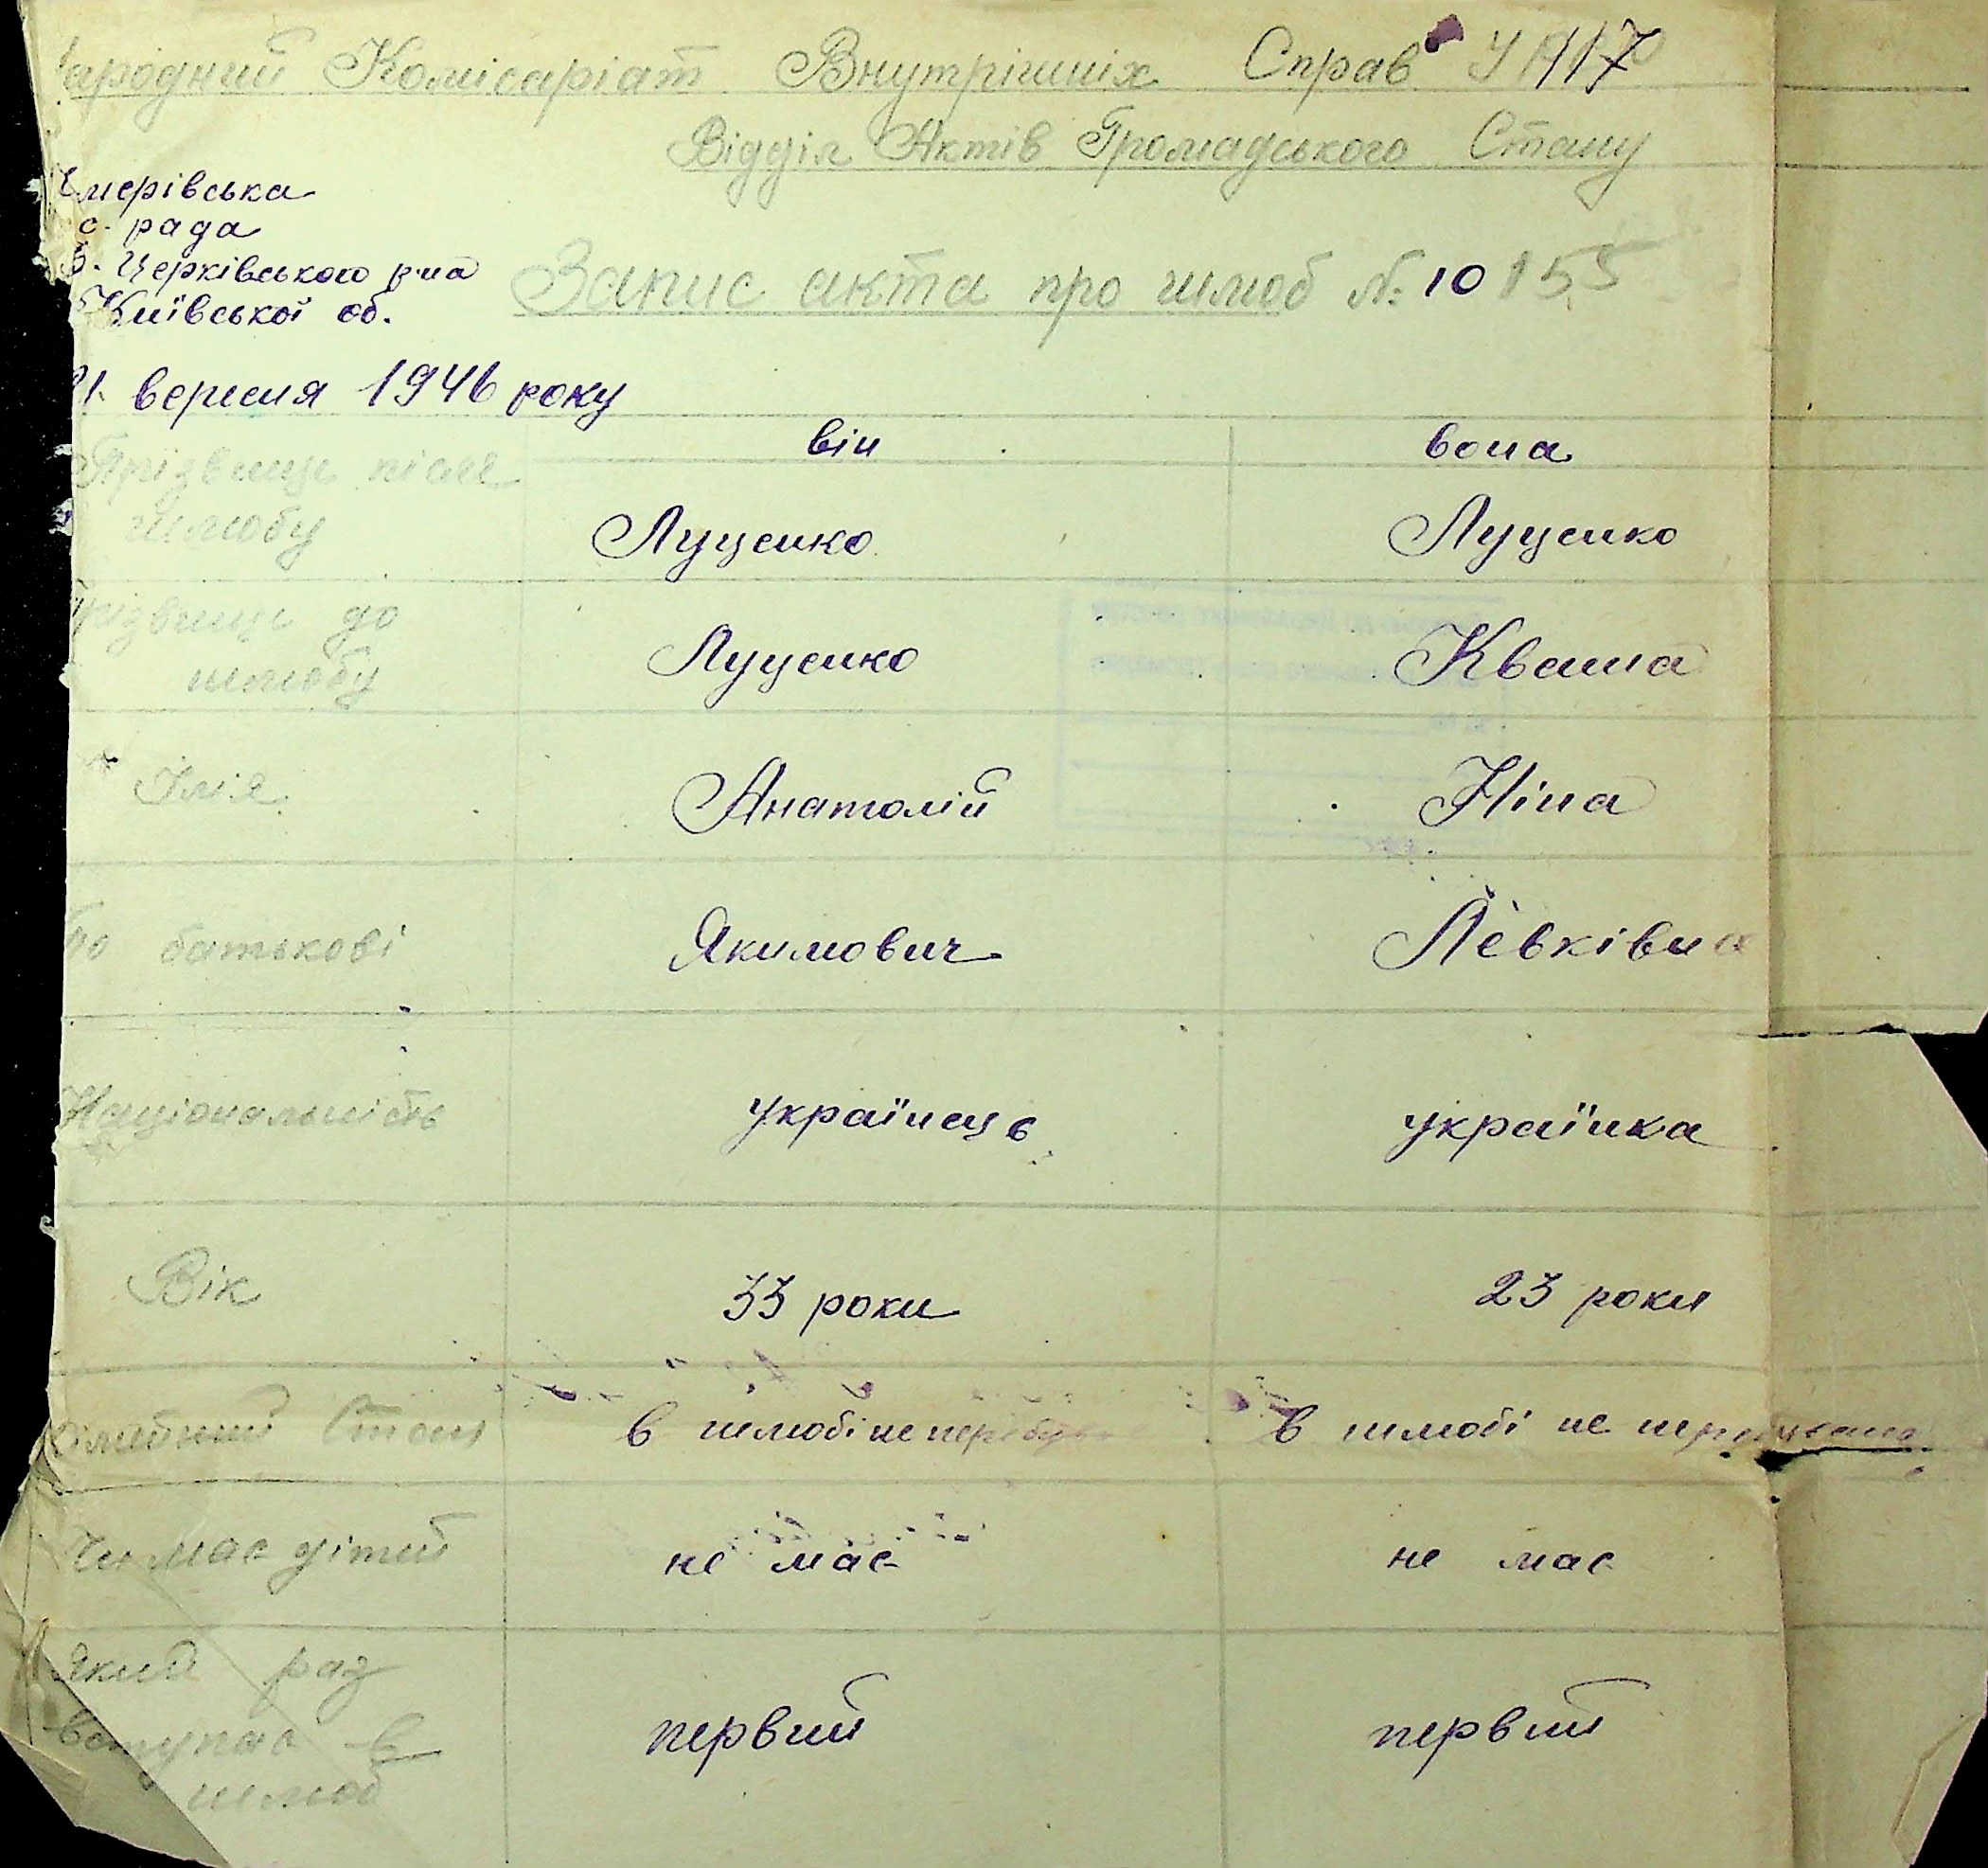 Народний Комісаріат Внутрішніх Справ У 117
Відділ Актів Громадського Стану
Чмерівська
с. рада
Б. Церківського р-на
Київської об.
Запис акта про шлюб №: 10 155
21. вересня 1946 року
він вона
Прізвище після шлюбу Луценко Луценко
Прізвище до шлюбу Луценко Кваша
Імя Анатолій Ніна
По батькові Якимович Левківна
Національність українець українка
Вік 33 роки 23 роки
Сімейний Стан в шлюбі не перебував в шлюбі не перебувала
Чи має дітей не має не має
Який раз вступає в шлюб первий первий